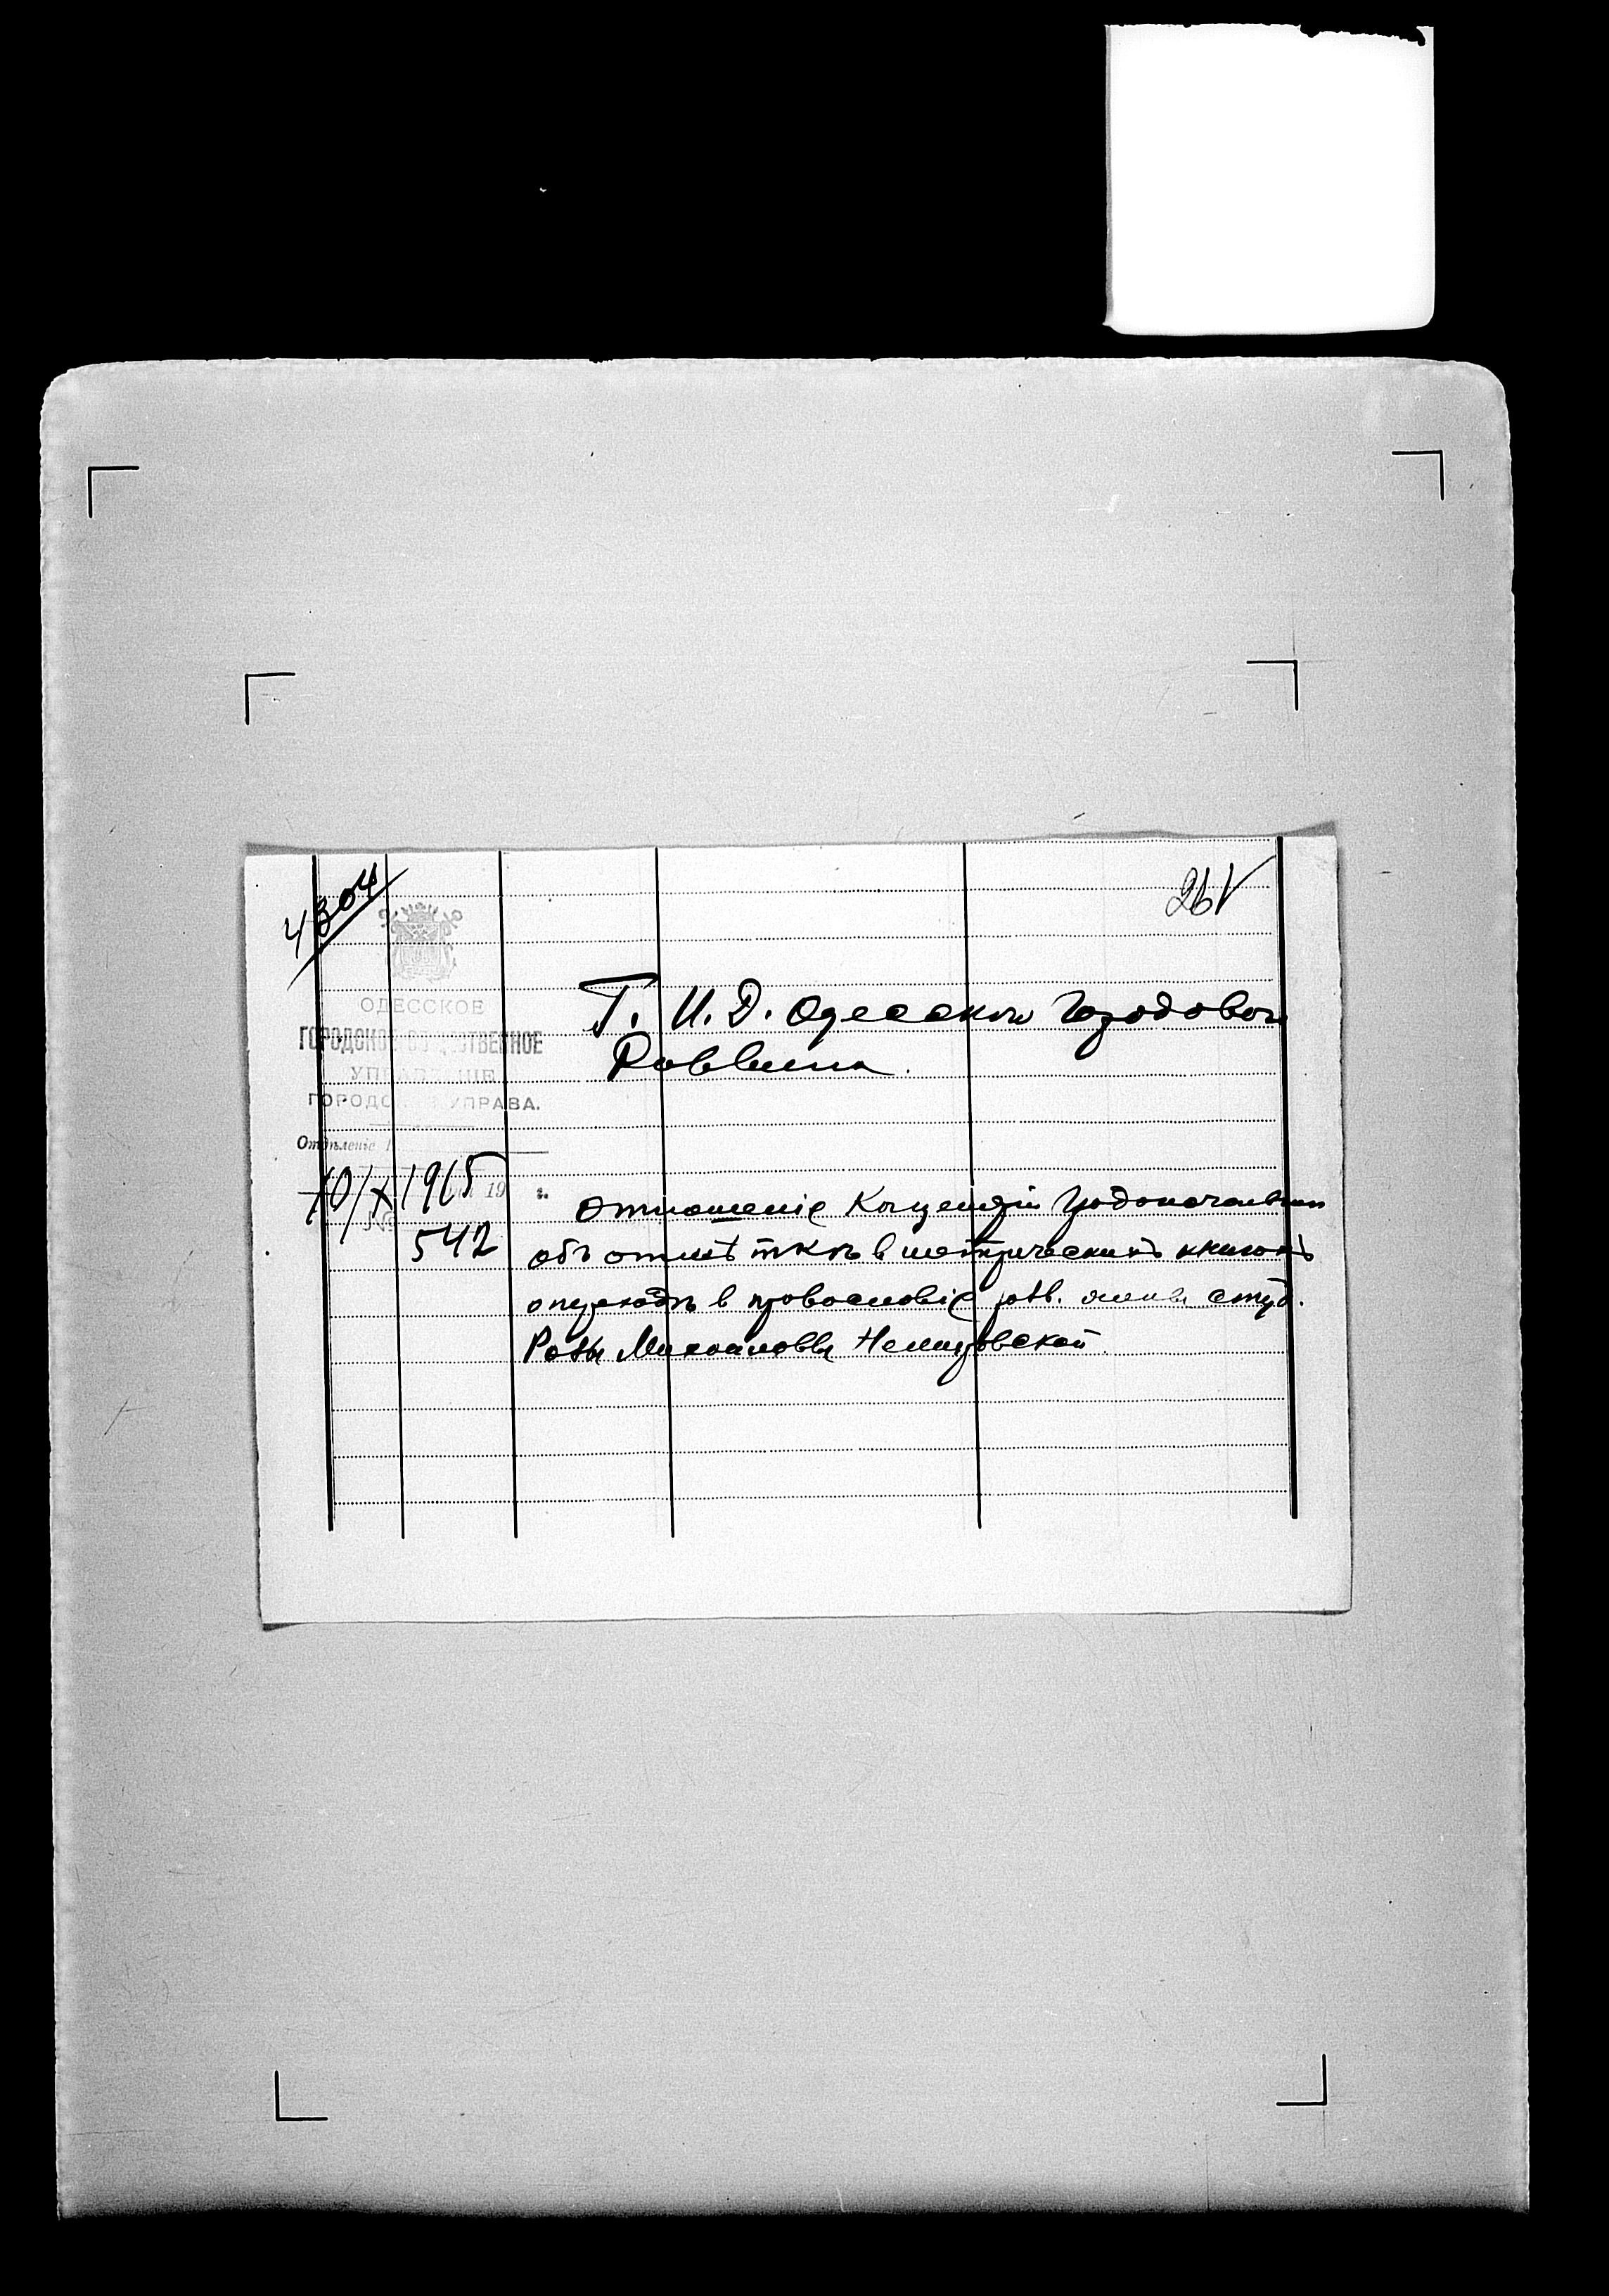 4304
26
ОДЕССКОЕ
ГОРОДСКОЕ ОБЩЕСТВЕННОЕ
УПРАВЛЕНІЕ
ГОРОДСКАЯ УПРАВА.
Отдѣленіе
10/X 1915
19 г.
№
542
Г. И. Д. Одесскаго Городового
Раввина.
Отношеніе Канцеляріи Градоначальника
объ отмѣткѣ в метрическихъ книгахъ
о переходѣ в православіе жены студ.
Розы Михайловны